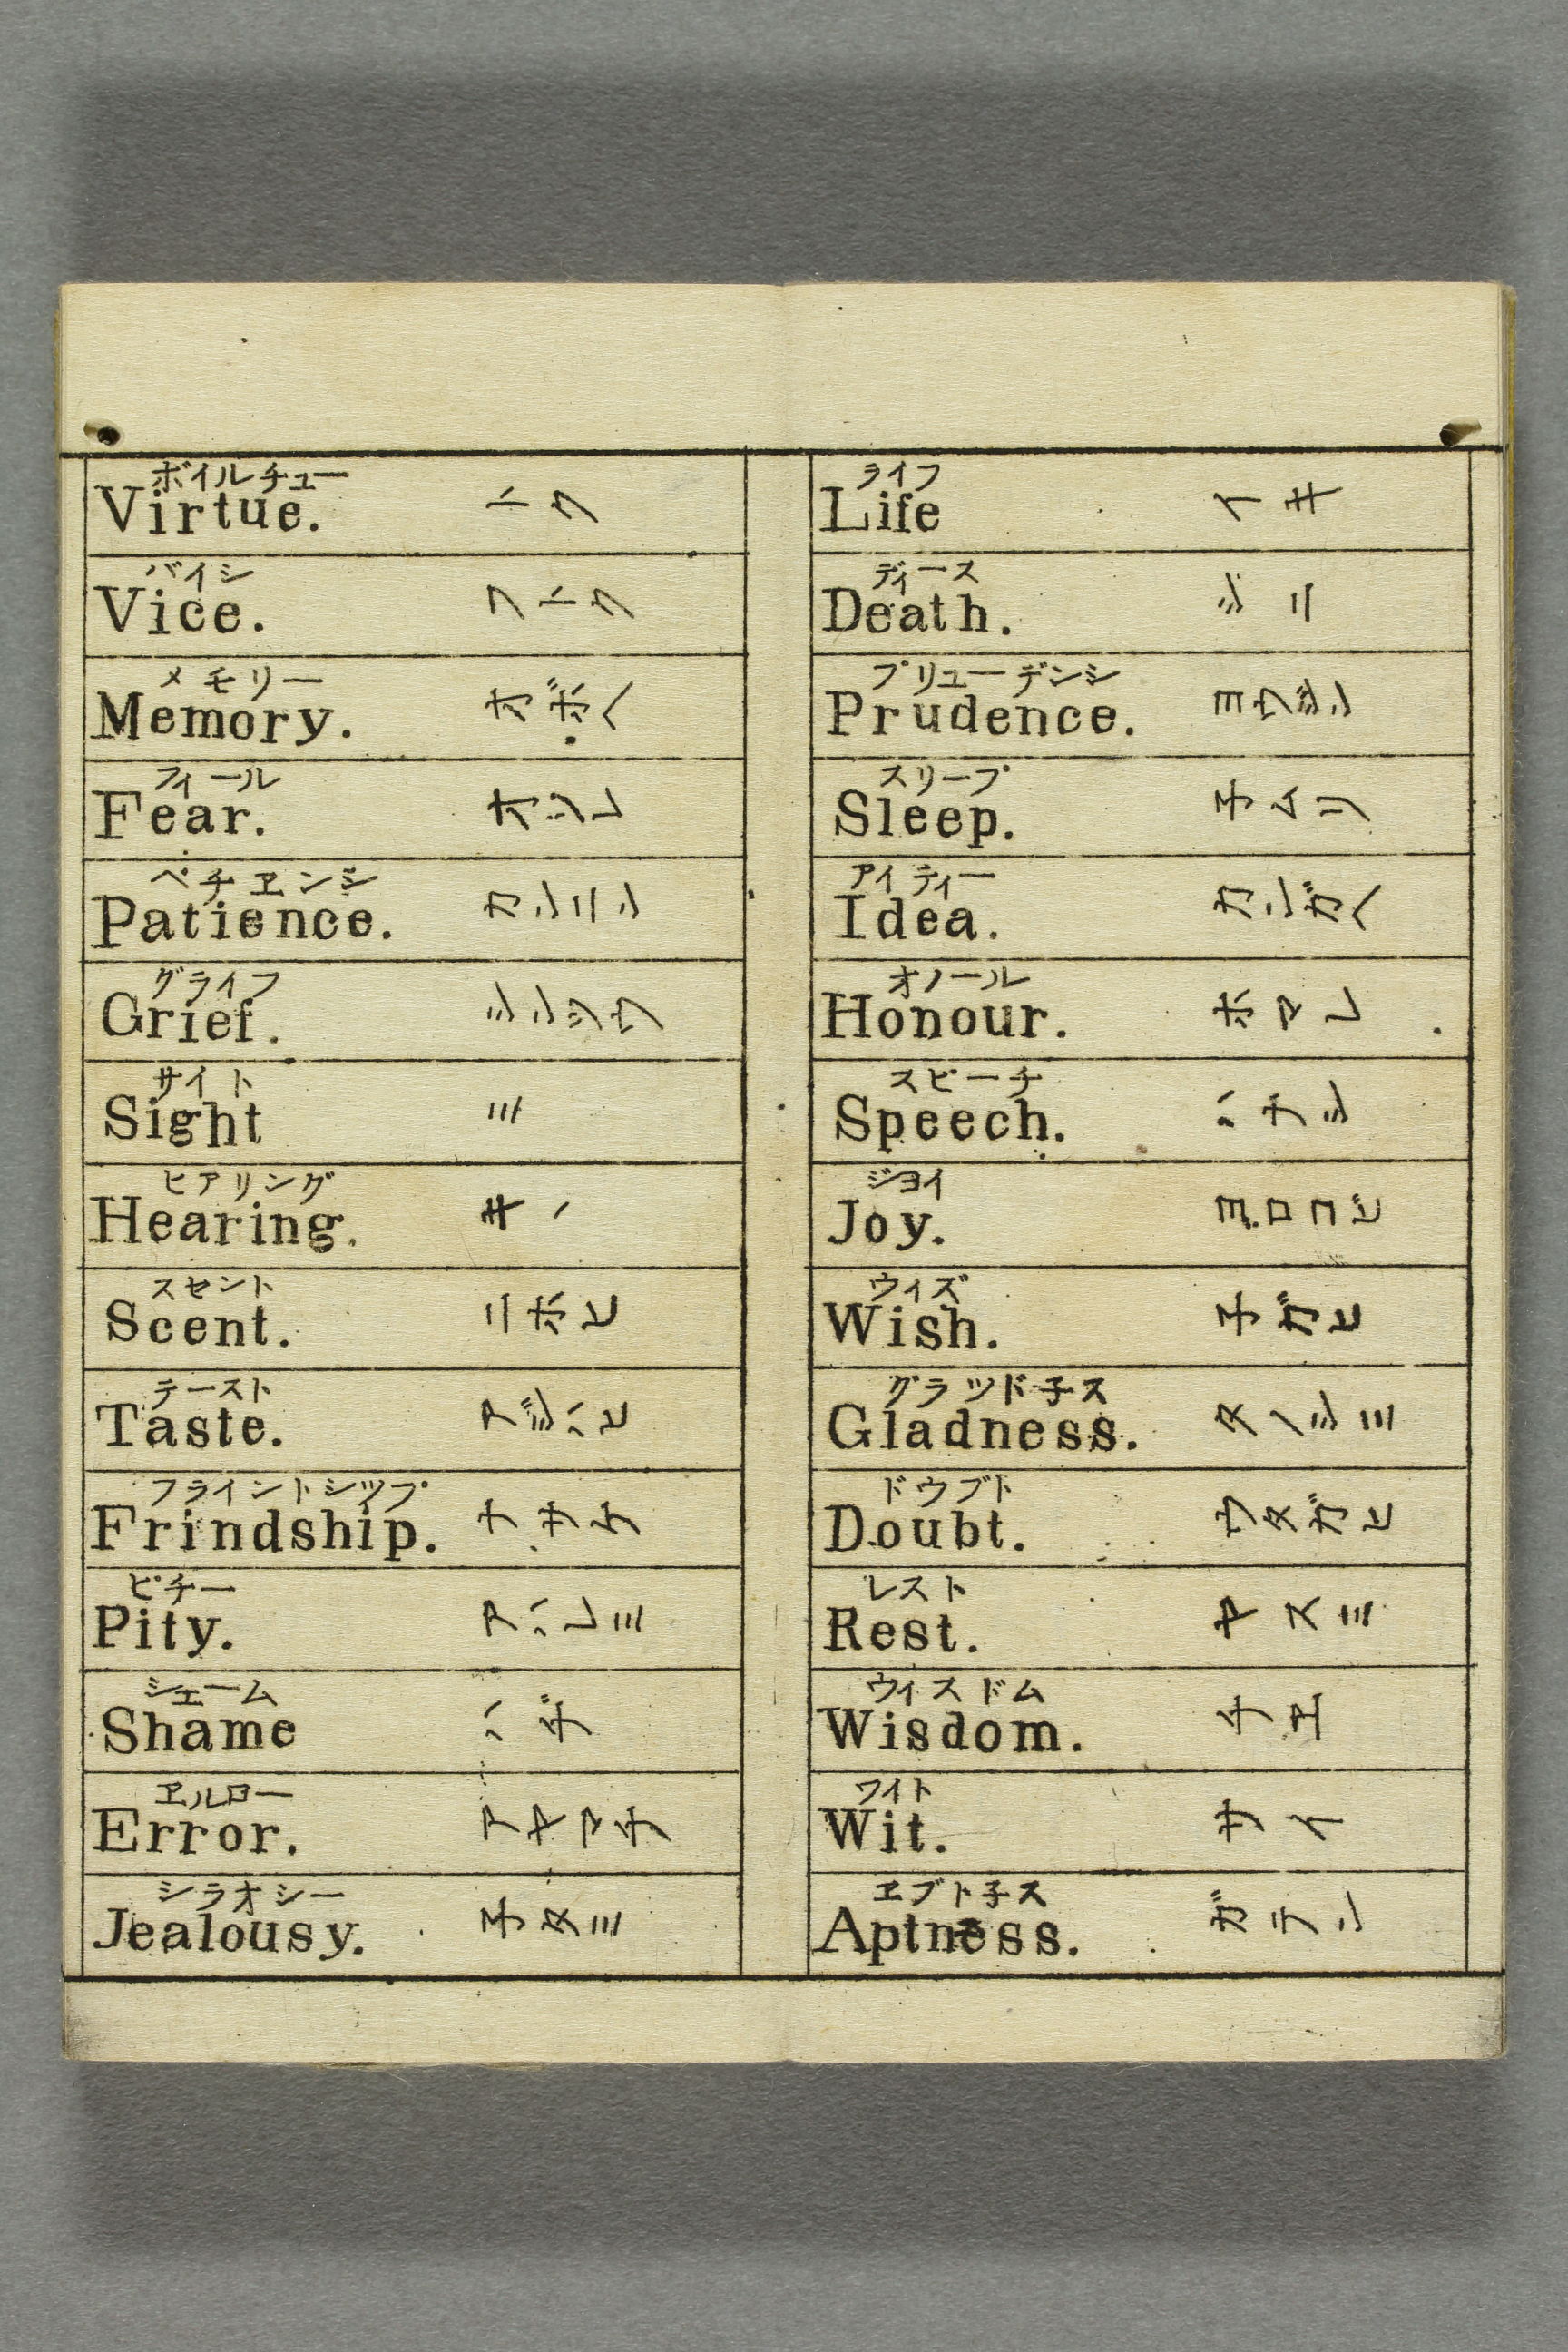 ボイルチュー
Virtue. トク
バイシ
Vice. フトク
メモリー
Memory. オボヘ
フィール
Fear. オソレ
ペチヱンシ
Patience. カンニン
グライフ
Grief. シンツウ
サイト
Sight ミ
ヒアリング
Hearing. キヽ
スセント
Scent. ニホヒ
テースト
Taste. アジハヒ
フライントシップ
Frindship. ナサケ
ピチー
Pity. アハレミ
シェーム
Shame ハヂ
ヱルロー
Error. アヤマチ
シラオシー
Jealousy. 子タミ
ライフ
Life イキ
ディース
Death. シニ
プリューデンシ
Prudence. ヨウジン
スリープ
Sleep. 子ムリ
アイディー
Idea. カンガヘ
オノール
Honour. ホマレ
スピーチ
Speech. ハナシ
ジョイ
Joy. ヨロコビ
ウィズ
Wish. 子ガヒ
グラッド子ス
Gladness. タノシミ
ドウブト
Doubt. ウタガヒ
レスト
Rest. ヤスミ
ウィスドム
Wisdom. チヱ
ワイト
Wit. サイ
ヱブト子ス
Aptness. ガテン